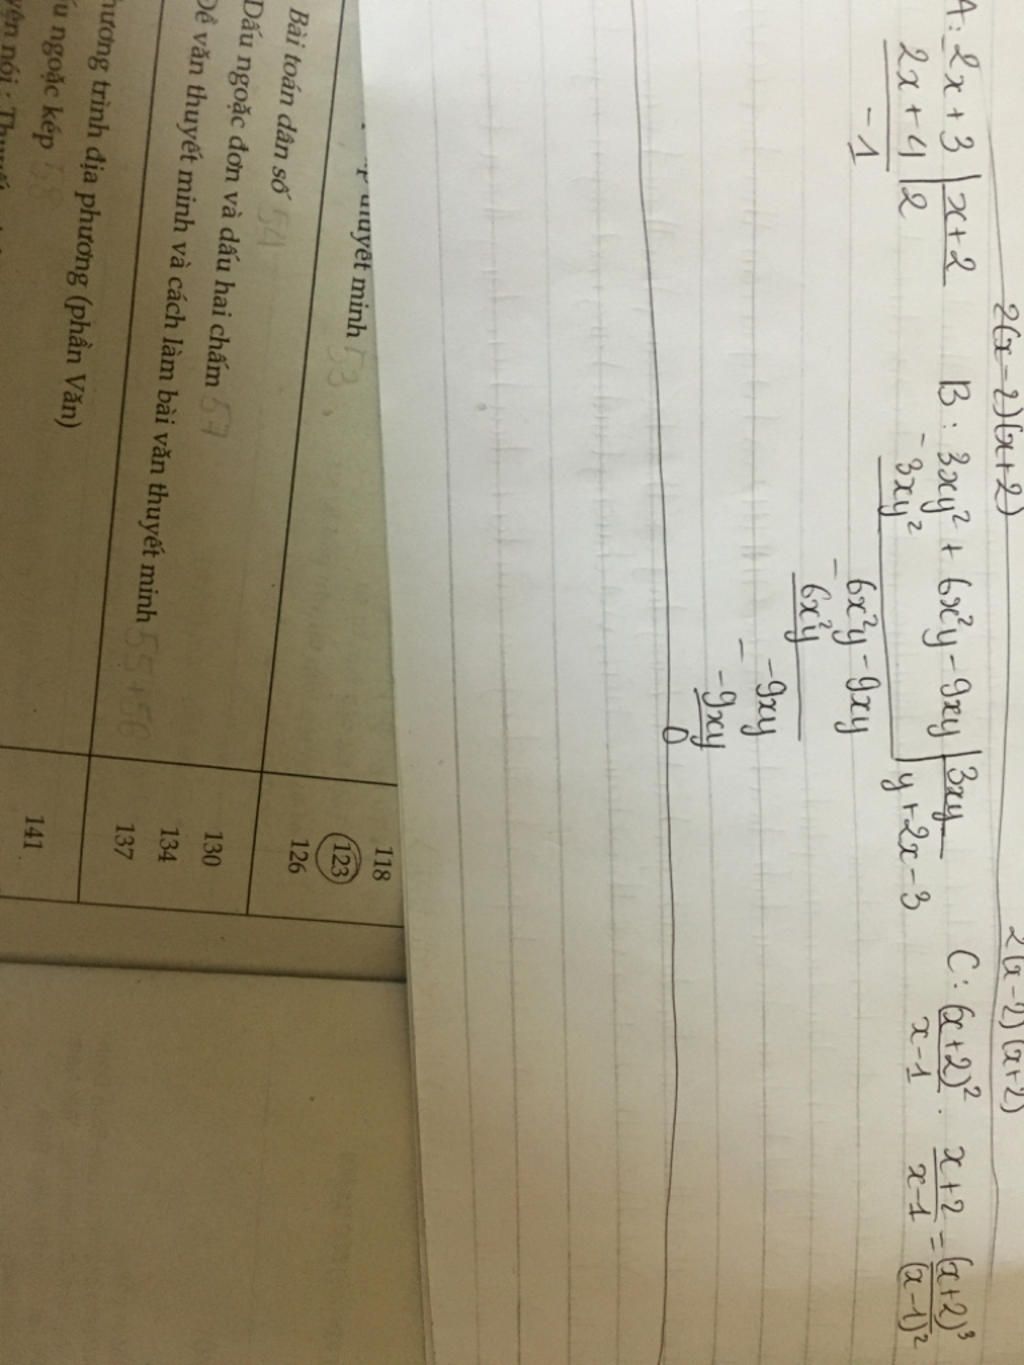 2(x-2)(x+2)
2(x-2)(x+2)
A: 2x+3 | x+2
2x+4 | 2
-1
B: 3xy² + 6x²y - 9xy | 3xy
- 3xy² | y+2x-3
6x²y - 9xy
- 6x²y
-9xy
- -9xy
0
C: (x+2)² / x-1 . x+2 / x-1 = (x+2)³ / (x-1)²
thuyết minh 53
118
123
Bài toán dân số 54
126
Dấu ngoặc đơn và dấu hai chấm 57
Đề văn thuyết minh và cách làm bài văn thuyết minh 55+56
130
134
137
hương trình địa phương (phần Văn)
ngoặc kép 58
141
nói :